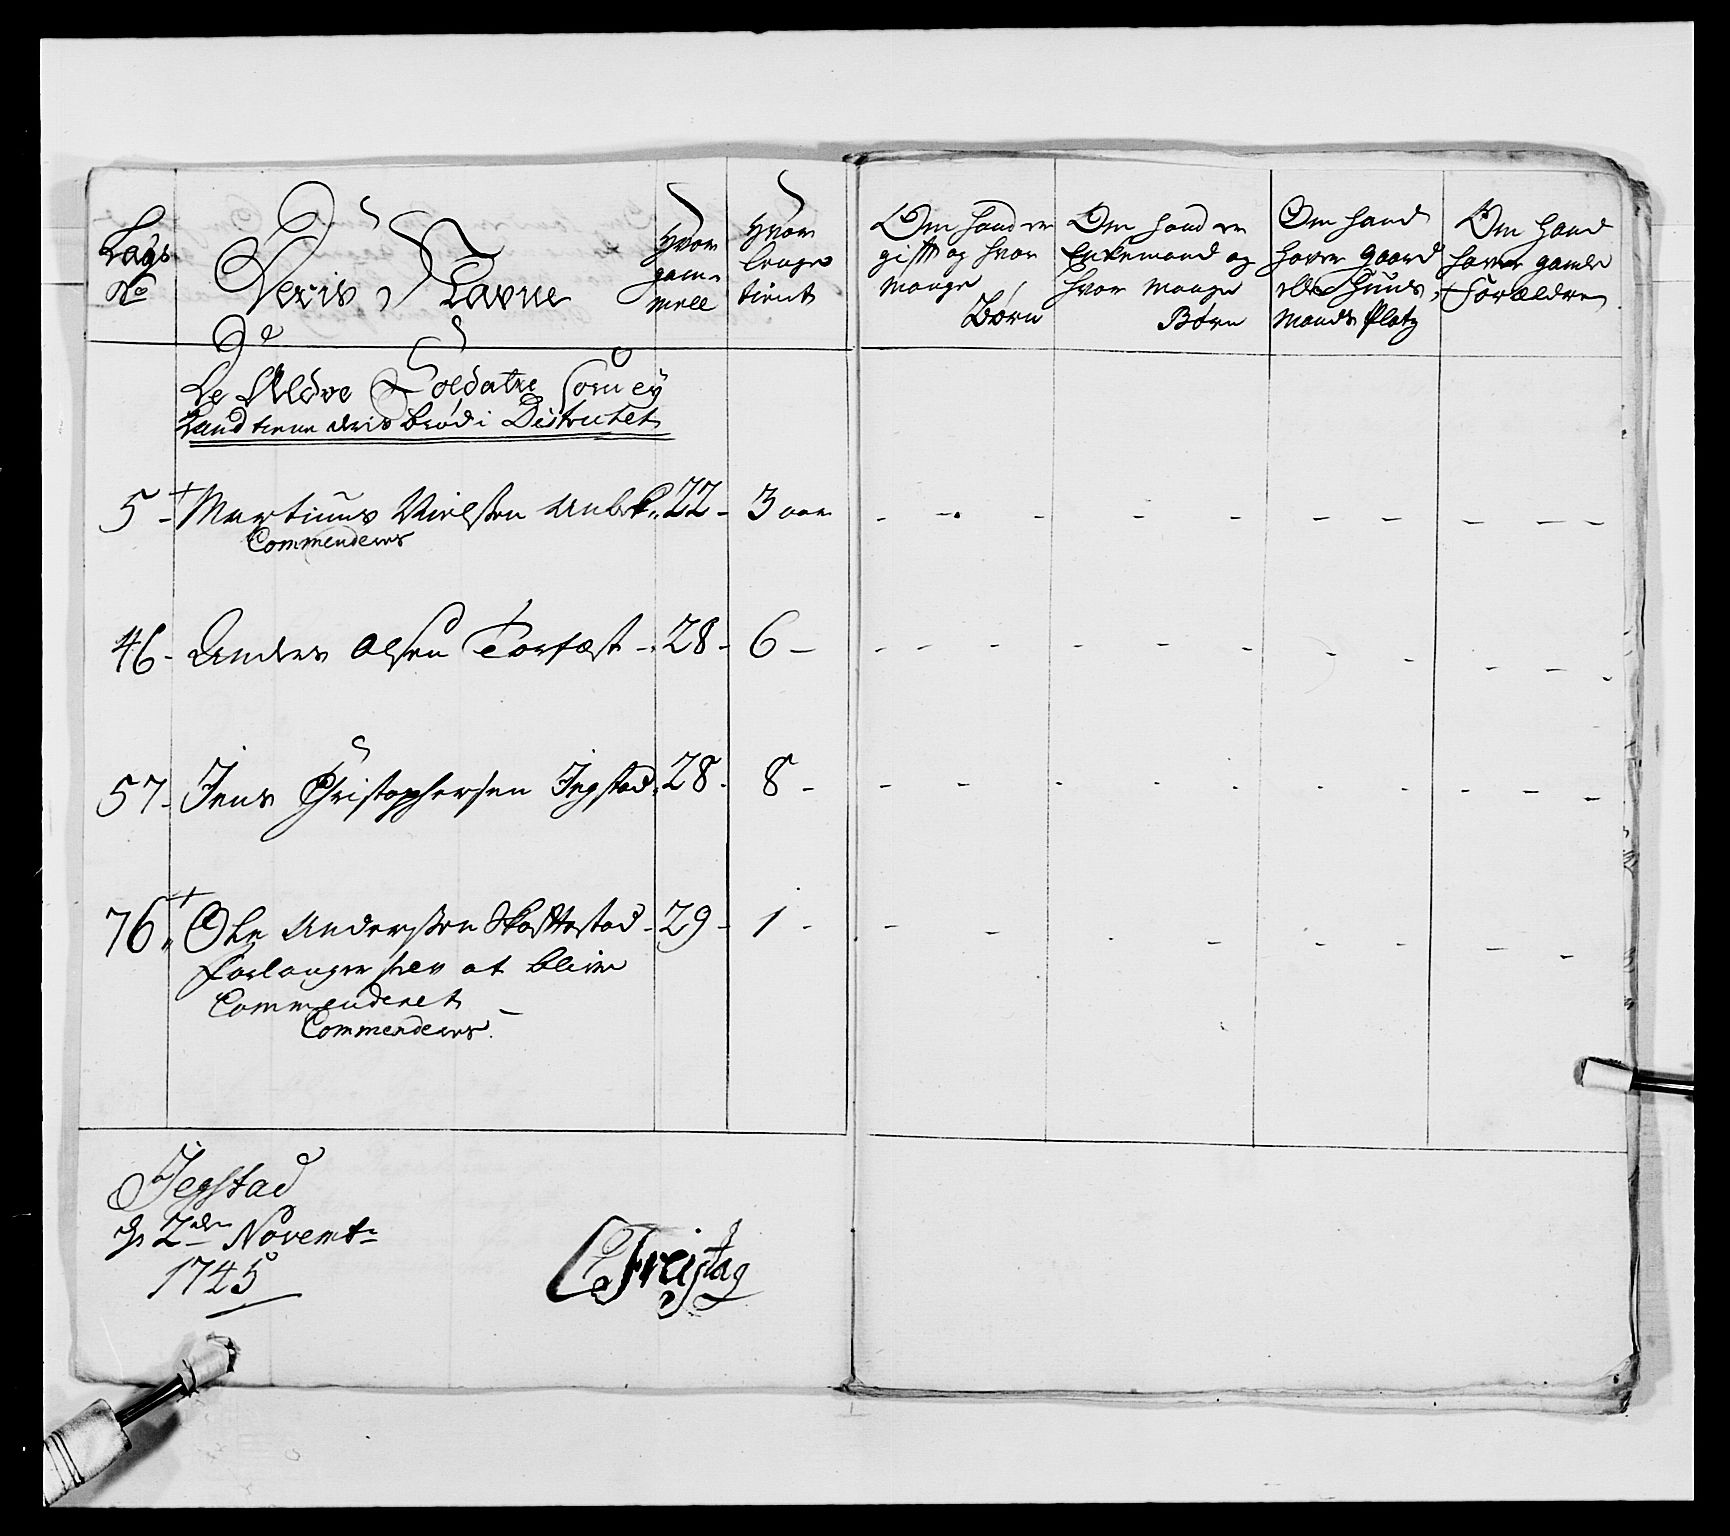 Lægs
No
Deris Navne
Hvor
gam-
mell
Hvor
lenge
tient
Om hand er
gift og hvor
mange
Børn
Om hand er
Enkemand og
hvor mange
Børn
Om hand
haver Gaard
eller Huus
mands Platz
Om hand
haver gamle
Forældre
De Ældre Soldater som ey
kand tiene deris brød i Districtet
5 - + Martinus Nielssen 22 - 3 aar
Commenderes
46 - Anders Olsen Torfæst - 28 - 6 -
57 - Jens Christophersen Jegstad 28 - 8 -
76 + Ole Anderssen Skottestad - 29 - 1 -
forlanger selv at blive
Commenderet
Commenderes.
Jegstad
d 2den Novembr
1745
Freijtag